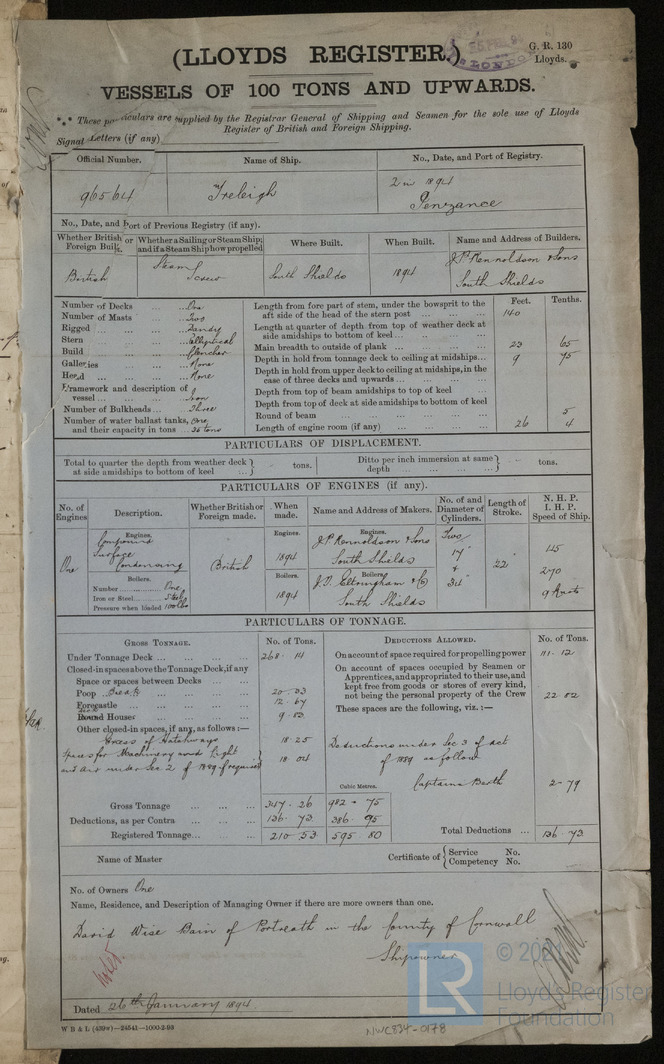 (LLOYDS REGISTER.)
G. R. 130
Lloyds.
VESSELS OF 100 TONS AND UPWARDS.
*** These particulars are supplied by the Registrar General of Shipping and Seamen for the sole use of Lloyds
Register of British and Foreign Shipping.
Signal Letters (if any)
Official Number. Name of Ship. No., Date, and Port of Registry.
96564 Treleigh 2 in 1894
Penzance
No., Date, and Port of Previous Registry (if any).
Whether British or Foreign Built. Whether a Sailing or Steam Ship; and if a Steam Ship how propelled Where Built. When Built. Name and Address of Builders.
British Steam Screw South Shields 1894 J.P. Rennoldson & Sons
South Shields
Feet. Tenths.
Number of Decks ... ... One
Number of Masts ... ... Two
Rigged ... ... Dandy
Stern ... ... Elliptical
Build ... ... Clencher
Galleries ... ... None
Head ... ... None
Framework and description of vessel ... ... Iron
Number of Bulkheads ... Three
Number of water ballast tanks, One
and their capacity in tons ... 35 tons
Length from fore part of stem, under the bowsprit to the aft side of the head of the stern post ... ... 140
Length at quarter of depth from top of weather deck at side amidships to bottom of keel ... ...
Main breadth to outside of plank ... ... 23 65
Depth in hold from tonnage deck to ceiling at midships ... 9 75
Depth in hold from upper deck to ceiling at midships, in the case of three decks and upwards ... ...
Depth from top of beam amidships to top of keel
Depth from top of deck at side amidships to bottom of keel
Round of beam ... ... 5
Length of engine room (if any) ... ... 26 4
PARTICULARS OF DISPLACEMENT.
Total to quarter the depth from weather deck at side amidships to bottom of keel ... tons. Ditto per inch immersion at same depth ... ... tons.
PARTICULARS OF ENGINES (if any).
No. of Engines Description. Whether British or Foreign made. When made. Name and Address of Makers. No. of and Diameter of Cylinders. Length of Stroke. N. H. P. I. H. P. Speed of Ship.
Engines. Engines. Engines.
One Compound Surface Condensing British 1894 J.P. Rennoldson & Sons South Shields Two 17" & 34" 22" 45 270 9 Knots
Boilers. Boilers. Boilers.
Number ... One
Iron or Steel ... Steel
Pressure when loaded 100 lbs
1894 J.T. Eltringham & Co South Shields
PARTICULARS OF TONNAGE.
GROSS TONNAGE. No. of Tons. DEDUCTIONS ALLOWED. No. of Tons.
Under Tonnage Deck ... ... 268.14
Closed-in spaces above the Tonnage Deck, if any
Space or spaces between Decks ... ...
Poop Break ... ... 20.33
Forecastle ... ... 12.67
Round Houses Deck ... ... 9.83
Other closed-in spaces, if any, as follows:—
Excess of Hatchways 18.25
Spaces for Machinery and Light and air under Sec 2 of 1889 if required 18.04
Gross Tonnage ... ... 347.26
Deductions, as per Contra ... 136.73
Registered Tonnage ... ... 210.53
Cubic Metres.
982.75
386.95
595.80
On account of space required for propelling power 111.12
On account of spaces occupied by Seamen or Apprentices, and appropriated to their use, and kept free from goods or stores of every kind, not being the personal property of the Crew 22.82
These spaces are the following, viz.:—
Deductions under Sec 3 of Act of 1889 as follows
Captains Berth 2.79
Total Deductions ... 136.73
Name of Master Certificate of Service No.
Competency No.
No. of Owners One
Name, Residence, and Description of Managing Owner if there are more owners than one.
David Wise Bain of Portreath in the County of Cornwall
Shipowner
Dated 26th January 1894
W B & L (439w)—24541—1000-2-93
NWC834-0178
LR
Lloyd's Register
Foundation